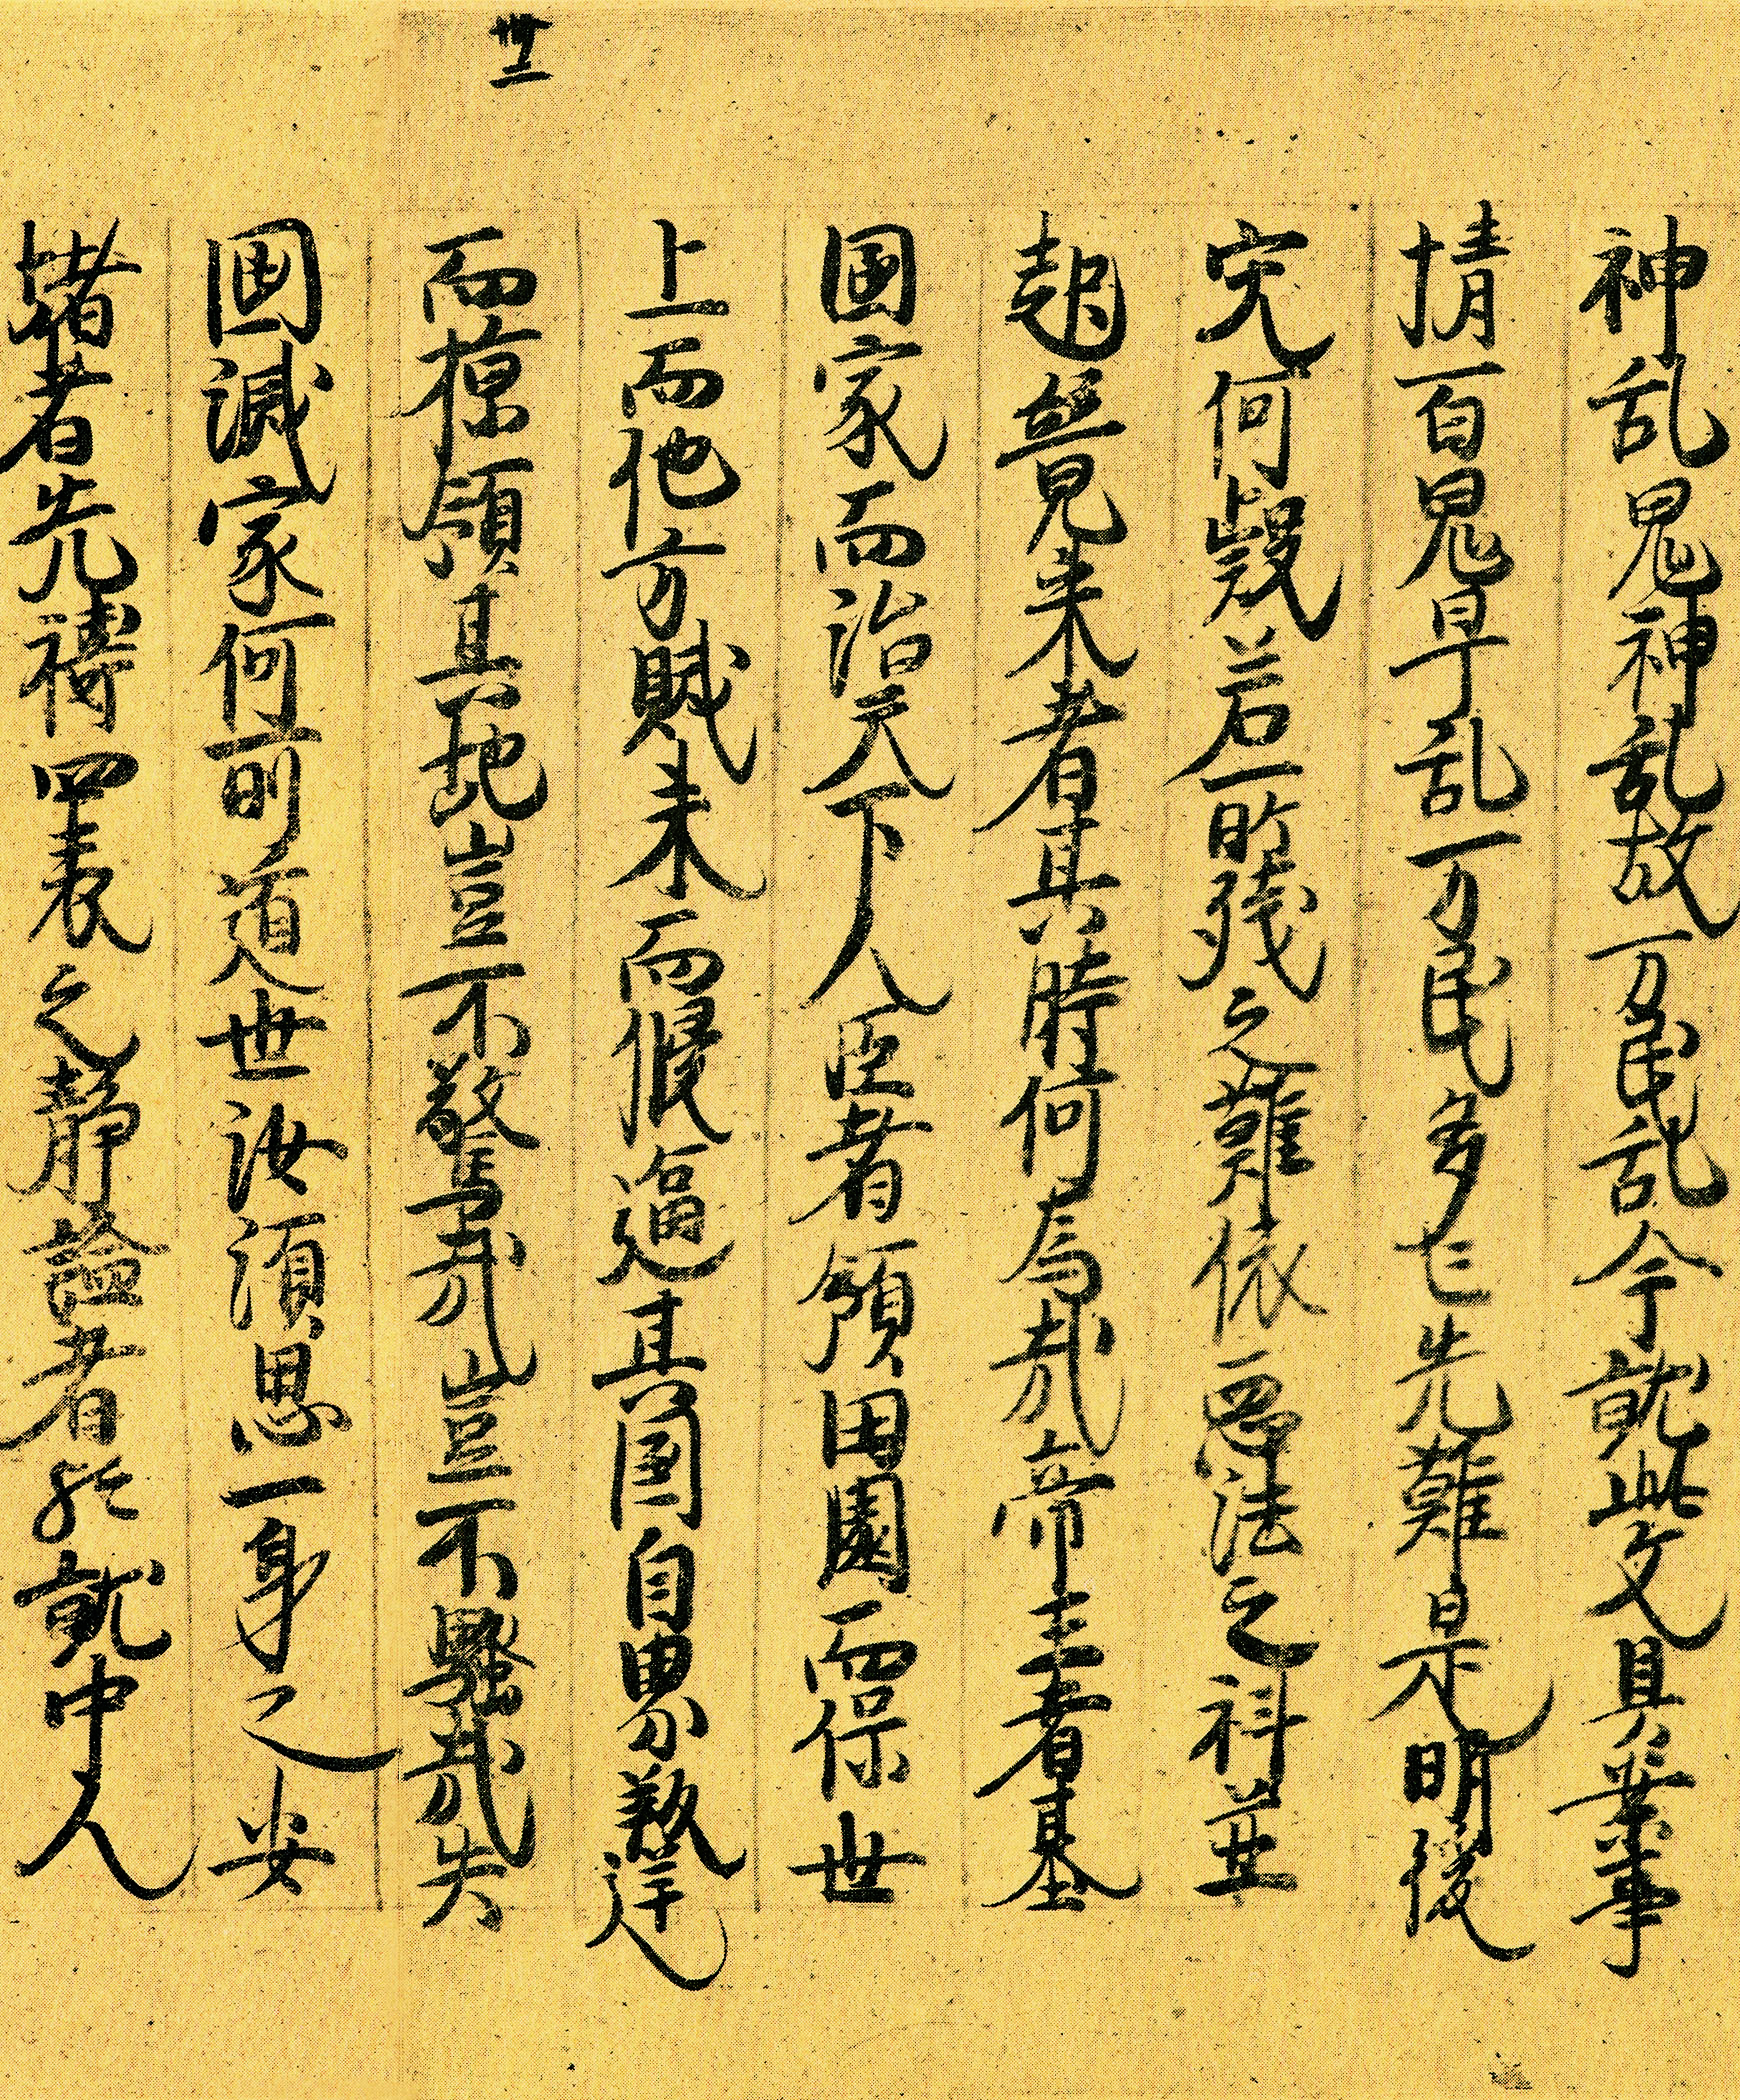 卅三
神乱鬼神乱故万民乱今就此文具案事
情百鬼早乱万民多亡先難是明後
災何疑若所残之難依悪法之科並
起競来者其時何為哉帝王者基
国家而治天下人臣者領田園而保世
上而他方賊来而侵逼其国自界叛逆
而掠領其地豈不驚哉豈不騒哉失
国滅家何所遁世汝須思一身之安
堵者先祷四表之静謐者歟就中人